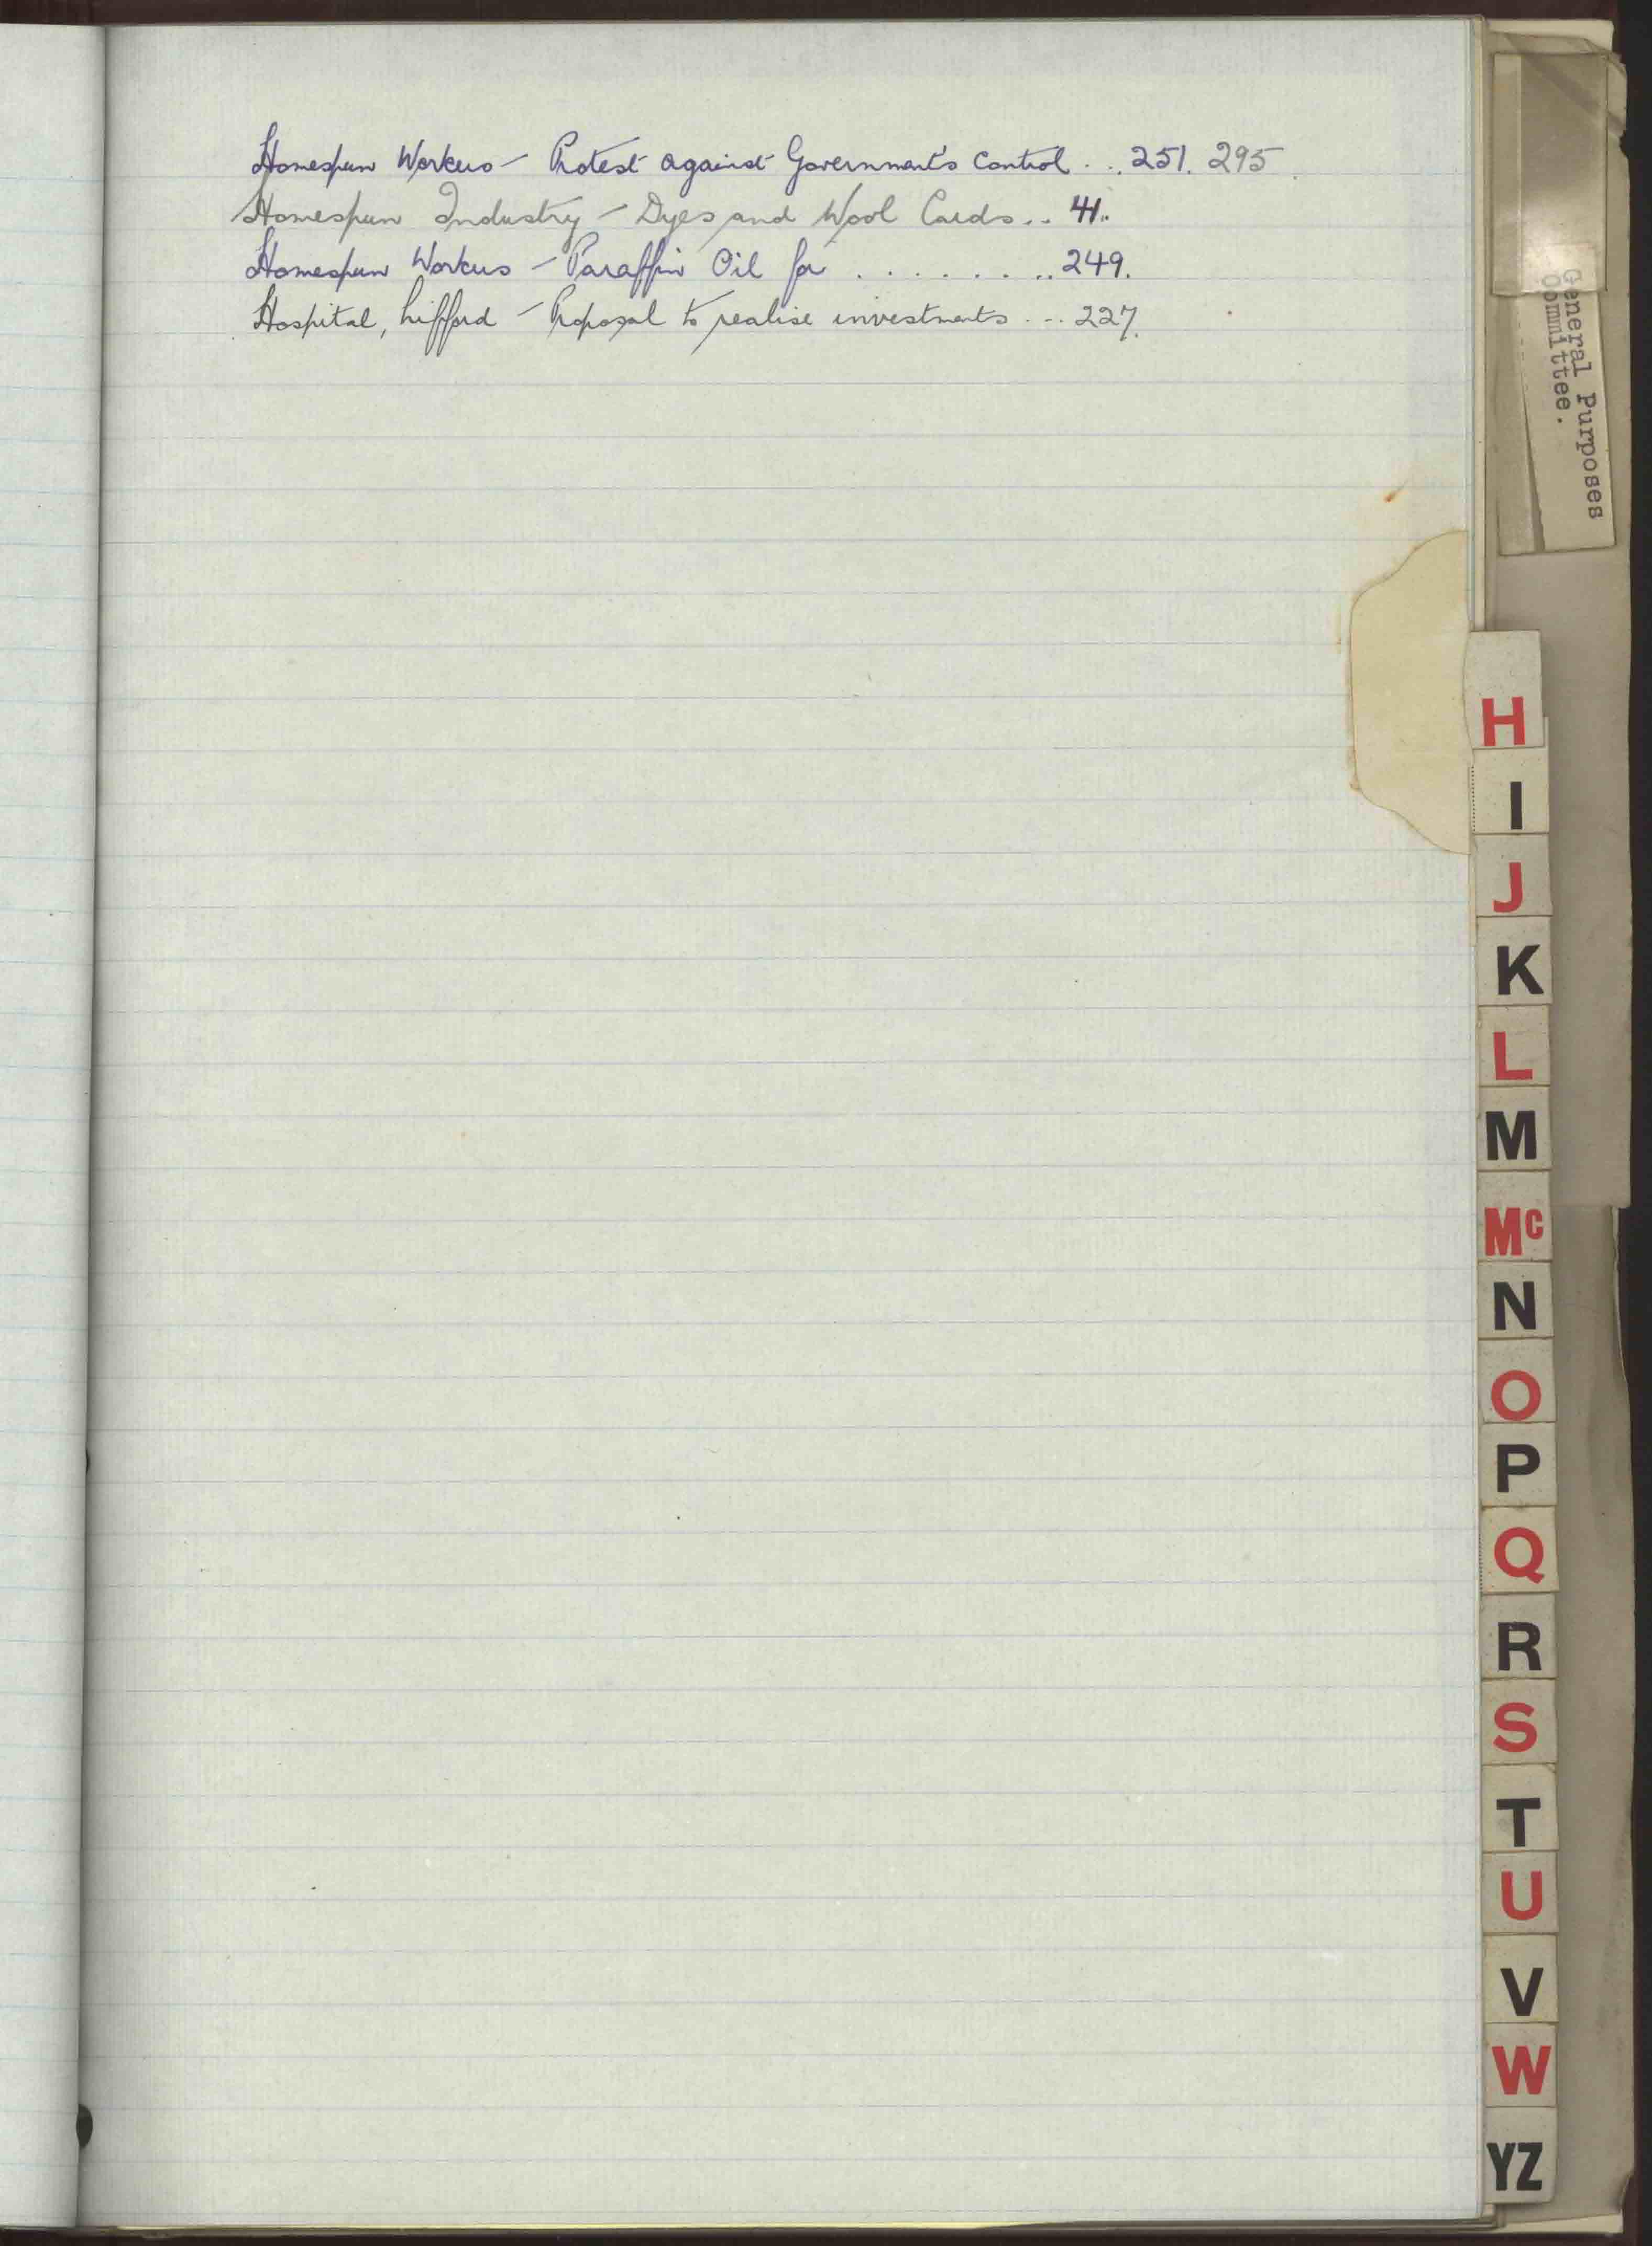 Homespun Workers – Protest against Government's Control ... 251. 295
Homespun Industry – Dyes and Wool Cards .. 41..
Homespun Workers – Paraffin Oil for . . . . . . . .. 249.
Hospital, Lifford – Proposal to realise investments ... 227.
General Purposes
Committee.
H
I
J
K
L
M
Mc
N
O
P
Q
R
S
T
U
V
W
YZ